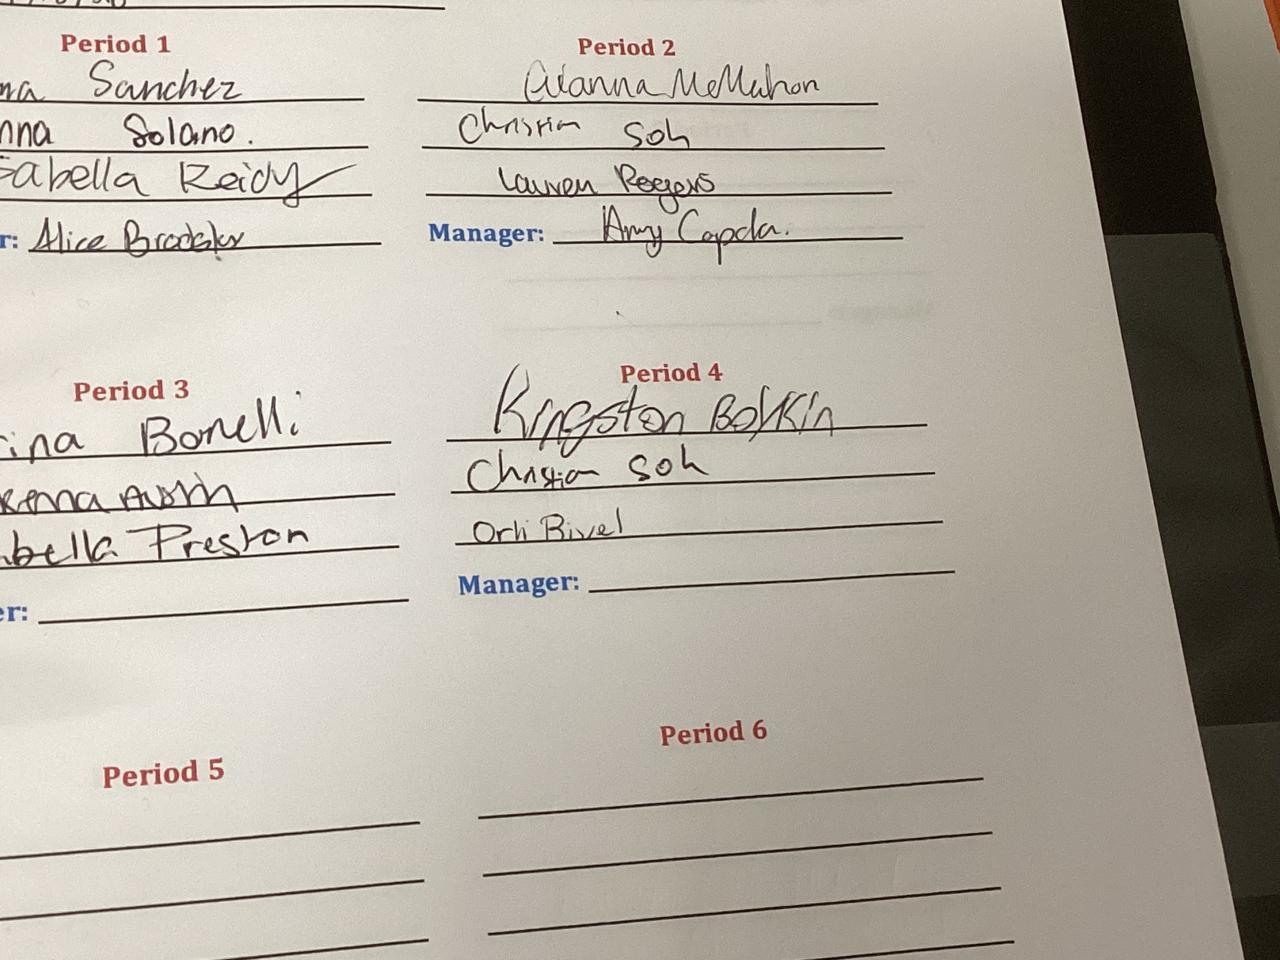 Period 1
na Sanchez
nna Solano.
sabella Reidy
r: Alice Brodsky
Period 2
Alanna McMahon
Christian Soh
Lauren Rogers
Manager: Amy
Period 3
ina Bonelli
bella Preston
er:
Period 4
Kingston Boykin
Christian Soh
Orli
Manager:
Period 5
Period 6